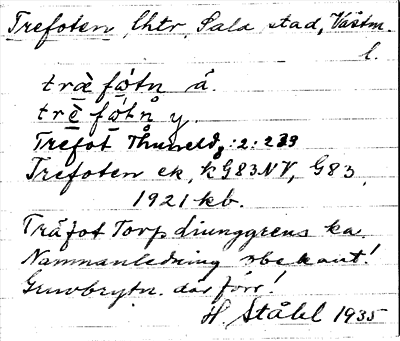 Trefoten lhtr, Sala stad, Västm.
l.
træ̀ fǿtn å.
trè fǿtn̊ y.
Trefot Thuneld, : 2: 239
Trefoten ek, kG83NV, G83,
1921 kb.
Träfot Torp djunggrens ka
Namnanledning obekant!
Gruvbrytn. där förr!
H. Ståhl 1935